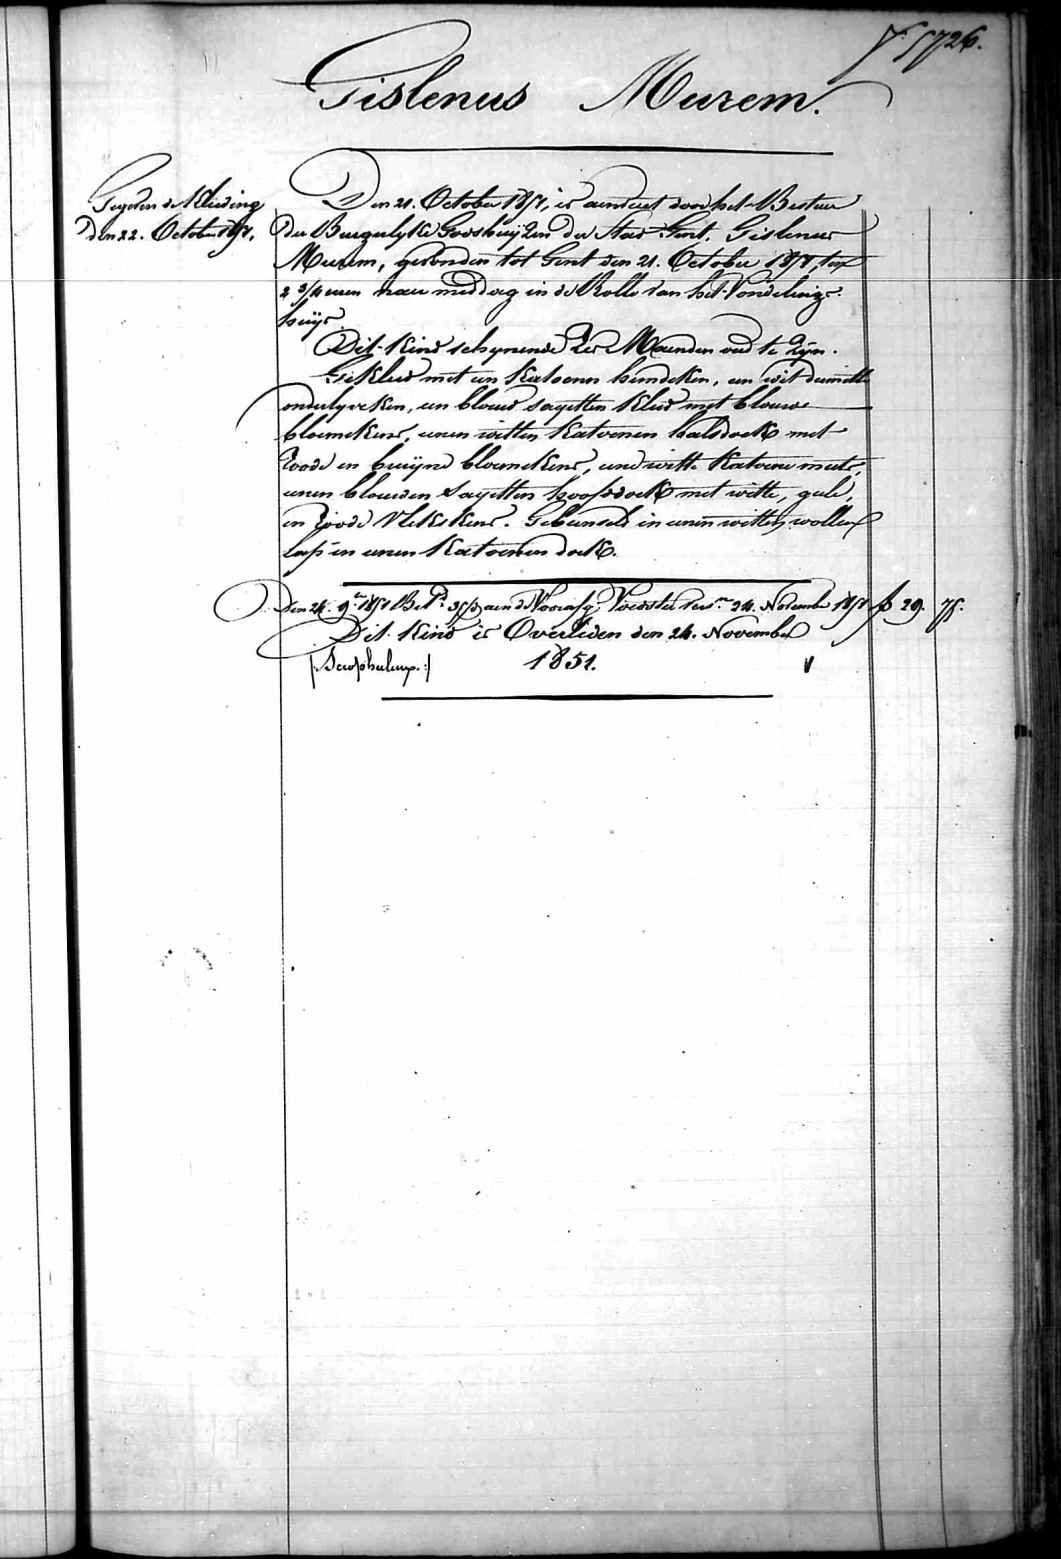 5726.
Gislenus Murem.
Gegeven de Kleeding
den 22. October 1851.
Den 21. October 1851, is aenveert door het Bestuer
der Burgerlyke Godshuyzen der Stad Gent, Gislenus
Murem, gevonden tot Gent den 21. October 1851, ten
2 3/4 uren naer middag in de Rolle van het Vondelings-
huys.
Dit Kind schynende zes Maenden oud te zyn.
Gekleed met een Katoenen hemdeken, een wit dimitte
onderlyveken, een blauw sayetten kleed met blauwe
bloemekens, eenen witten Katoenen halsdoek met
roode en bruyne bloemekens, eene witte Katoene muts,
eenen blauwen sayetten hoofddoek met witte, gele,
en roode vlekskens. Gebunseld in eenen witten wollen
lap en eenen Katoenen doek.
Den 24. 9bre 1851 Bet.d aen de Voedster 24. November 1851 f 29. 75.
Dit Kind is Overleden den 24. November
1851.